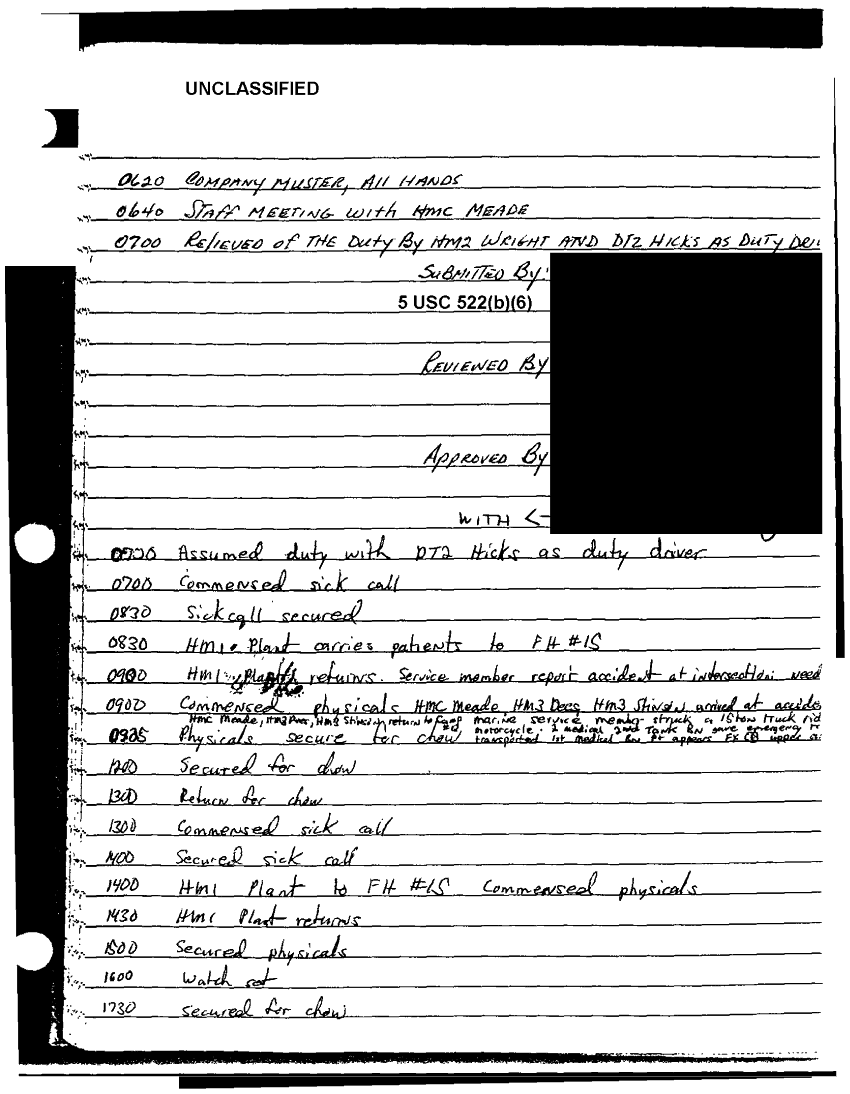 UNCLASSIFIED
0620 COMPANY MUSTER, All HANDS
0640 STAFF MEETING with HMC MEADE
0700 RElIEVED of THE Duty By HM2 WRIGHT AND DT2 HICKS AS DUTY DRI
SuBMITTED By:
5 USC 522(b)(6)
REVIEWED By
APPROVED By
WITH
Assumed duty with DT2 Hicks as duty driver
0700 Commensed sick call
0830 Sickcall secured
0830 HM1 Plant carries patients to FH #15
0900 HM1 returns. Service member report accident at intersection need
0900 Commensed physicals HMC Meade HM3 Dees HM3 Stinson arrived at accide
HMC Meade, HM3 Dees, HM3 Stinson return to Camp marine service member struck a 15ton truck rid
0925 Physicals secure for chow motorcycle. 2 medical 2nd Tank BN gave emergency
transported 1st medical BN Pt appears FX upper
1200 Secured for chow
1300 Return for chow
1300 Commensed sick call
1400 Secured sick call
1400 HM1 Plant to FH #15 Commensed physicals
1430 HM1 Plant returns
1500 Secured physicals
1600 Watch set
1730 secured for chow